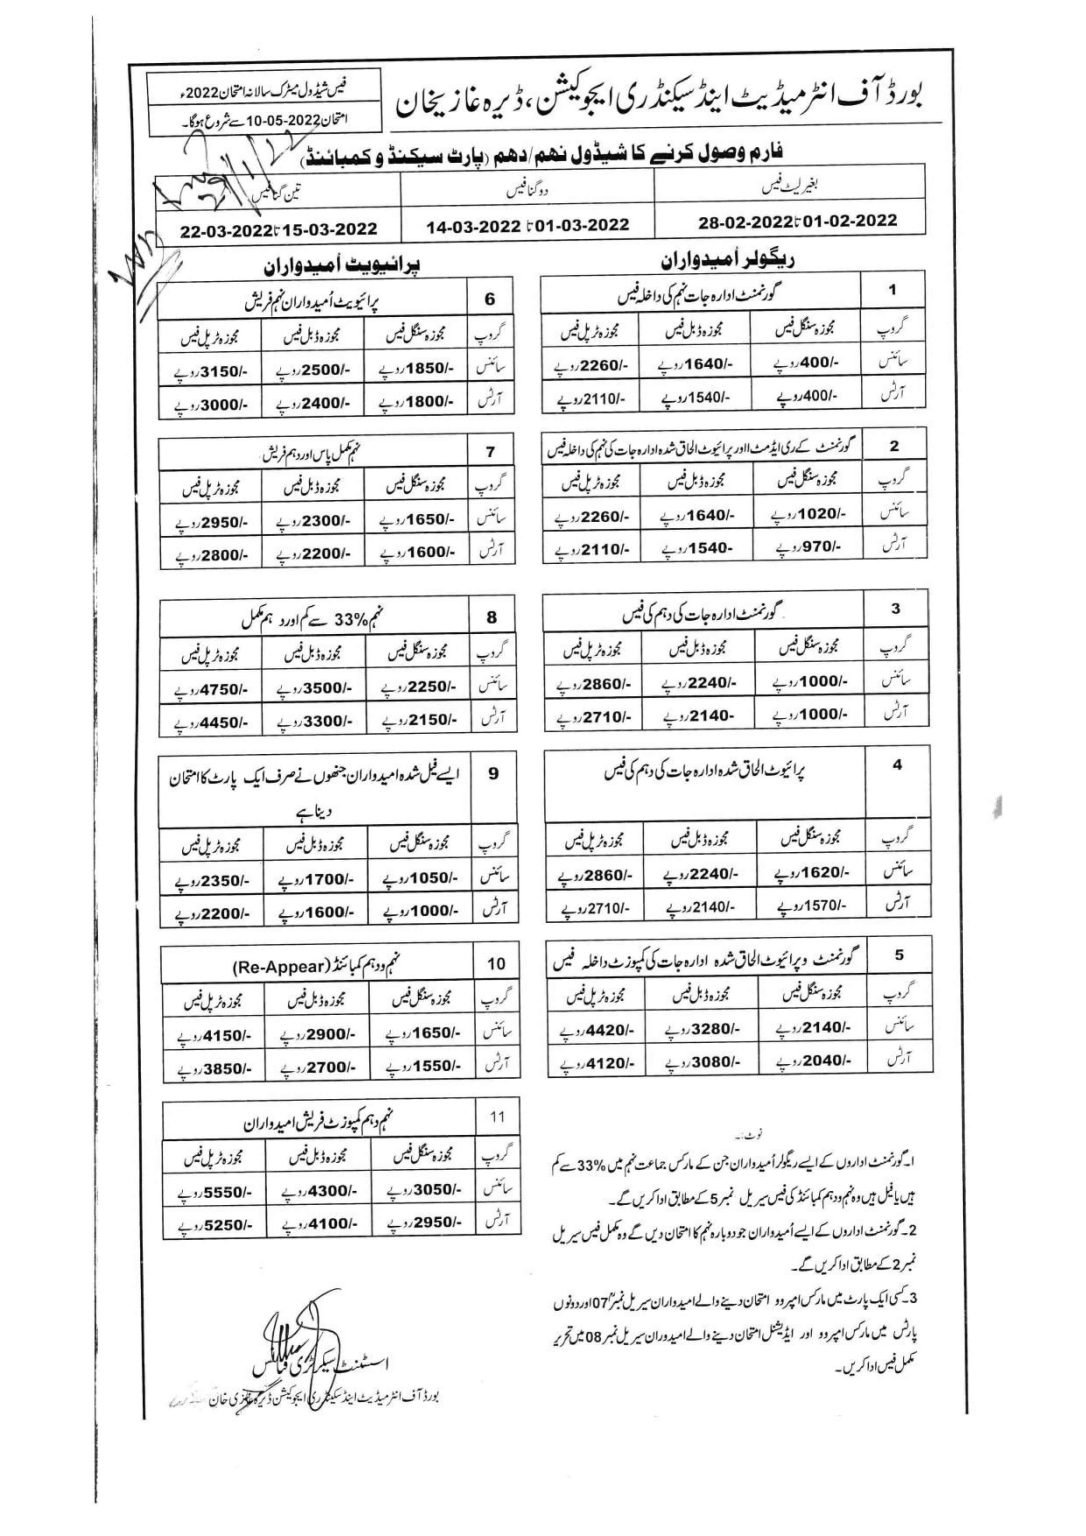 بورڈ آف انٹرمیڈیٹ اینڈ سیکنڈری ایجوکیشن، ڈیرہ غازیخان
فیس شیڈول میٹرک سالانہ امتحان 2022ء
امتحان 10-05-2022 سے شروع ہوگا۔
فارم وصول کرنے کا شیڈول نهم/دهم (پارٹ سیکنڈ و کمبائنڈ)
بغیر لیٹ فیس دوگنا فیس تین گنا فیس
01-02-2022 تا 28-02-2022 01-03-2022 تا 14-03-2022 15-03-2022 تا 22-03-2022
ریگولر اُمیدواران
1 گورنمنٹ ادارہ جات نہم کی داخلہ فیس
گروپ مجوزہ سنگل فیس مجوزہ ڈبل فیس مجوزہ ٹرپل فیس
سائنس 400/- روپے 1640/- روپے 2260/- روپے
آرٹس 400/- روپے 1540/- روپے 2110/- روپے
2 گورنمنٹ کے ری ایڈمٹ ااور پرائیوٹ الحاق شدہ ادارہ جات کی نہم کی داخلہ فیس
گروپ مجوزہ سنگل فیس مجوزہ ڈبل فیس مجوزہ ٹرپل فیس
سائنس 1020/- روپے 1640/- روپے 2260/- روپے
آرٹس 970/- روپے 1540- روپے 2110/- روپے
3 گورنمنٹ ادارہ جات کی دہم کی فیس
گروپ مجوزہ سنگل فیس مجوزہ ڈبل فیس مجوزہ ٹرپل فیس
سائنس 1000/- روپے 2240/- روپے 2860/- روپے
آرٹس 1000/- روپے 2140- روپے 2710/- روپے
4 پرائیوٹ الحاق شدہ ادارہ جات کی دہم کی فیس
گروپ مجوزہ سنگل فیس مجوزہ ڈبل فیس مجوزہ ٹرپل فیس
سائنس 1620/- روپے 2240/- روپے 2860/- روپے
آرٹس 1570/- روپے 2140/- روپے 2710/- روپے
5 گورنمنٹ و پرائیوٹ الحاق شدہ ادارہ جات کی کمپوزٹ داخلہ فیس
گروپ مجوزہ سنگل فیس مجوزہ ڈبل فیس مجوزہ ٹرپل فیس
سائنس 2140/- روپے 3280/- روپے 4420/- روپے
آرٹس 2040/- روپے 3080/- روپے 4120/- روپے
نوٹ:۔
1۔گورنمنٹ اداروں کے ایسے ریگولر اُمیدواران جن کے مارکس جماعت نہم میں 33% سے کم
ہیں یا فیل ہیں وہ نہم و دہم کمبائنڈ کی فیس سیریل نمبر 5 کے مطابق ادا کریں گے۔
2۔گورنمنٹ اداروں کے ایسے اُمیدواران جو دوبارہ نہم کا امتحان دیں گے وہ مکمل فیس سیریل
نمبر 2 کے مطابق ادا کریں گے۔
3۔کسی ایک پارٹ میں مارکس امپروو امتحان دینے والے امیدواران سیریل نمبر 07 اور دونوں
پارٹس میں مارکس امپروو اور ایڈیشنل امتحان دینے والے امیدوران سیریل نمبر 08 میں تحریر
مکمل فیس ادا کریں۔
پرائیویٹ اُمیدواران
6 پرائیویٹ اُمیدواران نہم فریش
گروپ مجوزہ سنگل فیس مجوزہ ڈبل فیس مجوزہ ٹرپل فیس
سائنس 1850/- روپے 2500/- روپے 3150/- روپے
آرٹس 1800/- روپے 2400/- روپے 3000/- روپے
7 نہم مکمل پاس اور دہم فریش
گروپ مجوزہ سنگل فیس مجوزہ ڈبل فیس مجوزہ ٹرپل فیس
سائنس 1650/- روپے 2300/- روپے 2950/- روپے
آرٹس 1600/- روپے 2200/- روپے 2800/- روپے
8 نہم 33% سے کم اور دہم مکمل
گروپ مجوزہ سنگل فیس مجوزہ ڈبل فیس مجوزہ ٹرپل فیس
سائنس 2250/- روپے 3500/- روپے 4750/- روپے
آرٹس 2150/- روپے 3300/- روپے 4450/- روپے
9 ایسے فیل شدہ امیدواران جنھوں نے صرف ایک پارٹ کا امتحان
دینا ہے
گروپ مجوزہ سنگل فیس مجوزہ ڈبل فیس مجوزہ ٹرپل فیس
سائنس 1050/- روپے 1700/- روپے 2350/- روپے
آرٹس 1000/- روپے 1600/- روپے 2200/- روپے
10 نہم و دہم کمبائنڈ (Re-Appear)
گروپ مجوزہ سنگل فیس مجوزہ ڈبل فیس مجوزہ ٹرپل فیس
سائنس 1650/- روپے 2900/- روپے 4150/- روپے
آرٹس 1550/- روپے 2700/- روپے 3850/- روپے
11 نہم دہم کمپوزٹ فریش امیدواران
گروپ مجوزہ سنگل فیس مجوزہ ڈبل فیس مجوزہ ٹرپل فیس
سائنس 3050/- روپے 4300/- روپے 5550/- روپے
آرٹس 2950/- روپے 4100/- روپے 5250/- روپے
اسسٹنٹ سیکرٹری فنانس
بورڈ آف انٹرمیڈیٹ اینڈ سیکنڈری ایجوکیشن ڈیرہ غازی خان